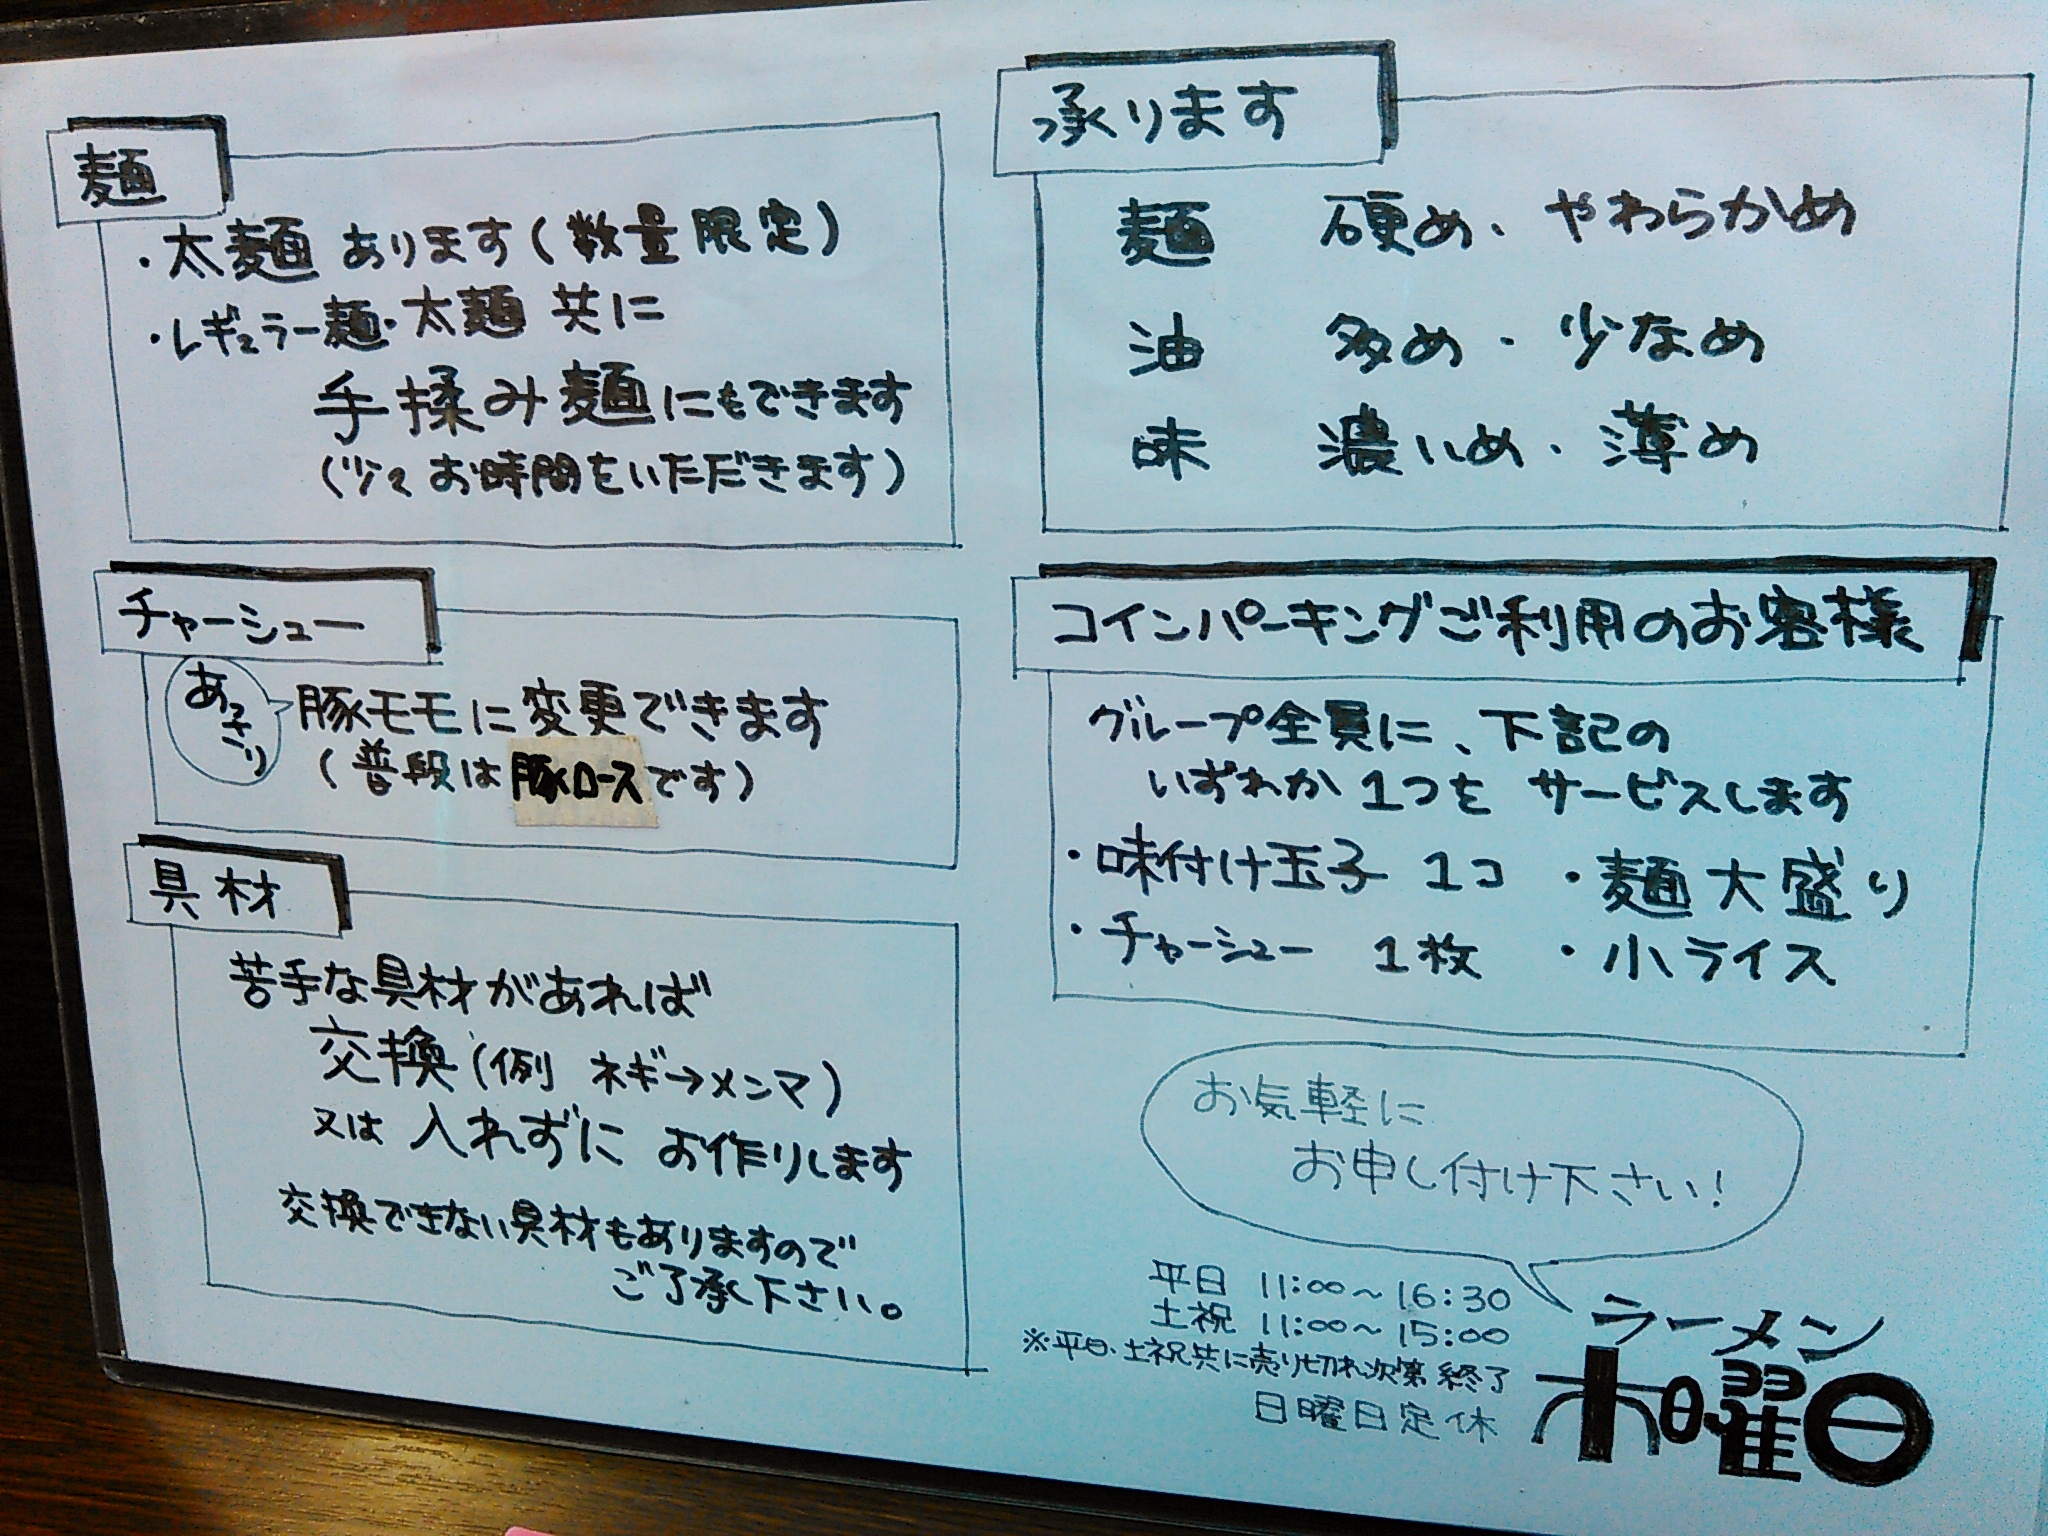 麺
・太麺 あります(数量限定)
・レギュラー麺・太麺 共に
手揉み麺にもできます
(少々お時間をいただきます)
チャーシュー
あっさり
豚モモに変更できます
(普段は豚ロースです)
具材
苦手な具材があれば
交換(例 ネギ→メンマ)
又は 入れずに お作りします
交換できない具材もありますので
ご了承下さい。
承ります
麺 硬め・やわらかめ
油 多め・少なめ
味 濃いめ・薄め
コインパーキングご利用のお客様
グループ全員に、下記の
いずれか 1つを サービスします
・味付け玉子 1コ ・麺大盛り
・チャーシュー 1枚 ・小ライス
お気軽に
お申し付け下さい!
平日 11:00～16:30
土祝 11:00～15:00
※平日・土祝共に売り切れ次第 終了
日曜日定休
ラーメン
木曜日